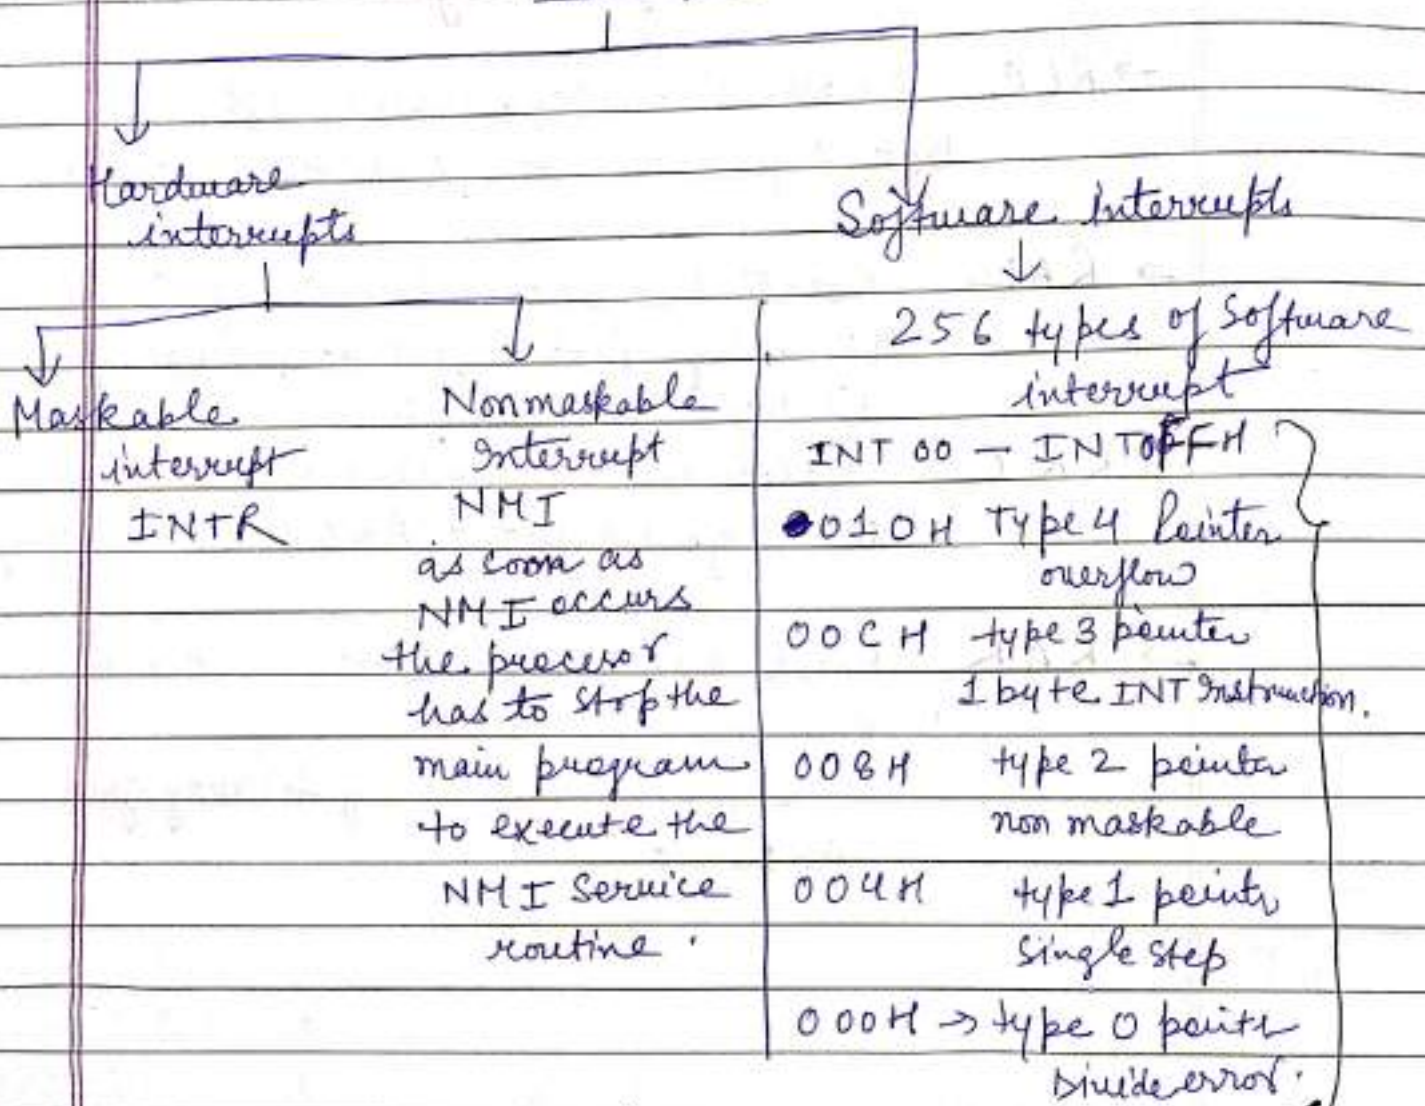 Hardware
interrupts
Maskable
interrupt
INTR
Nonmaskable
Interrupt
NMI
as soon as
NMI occurs
the procesor
has to stop the
main program
to execute the
NMI Service
routine.
Software interrupts
256 types of Software
interrupt
INT 00 — INT0FFH
010H Type 4 Pointer
overflow
00CH type 3 pointer
1 byte INT Instruction.
008H type 2 pointer
non maskable
004H type 1 pointr
Single step
000H → type 0 pointr
Divide error.